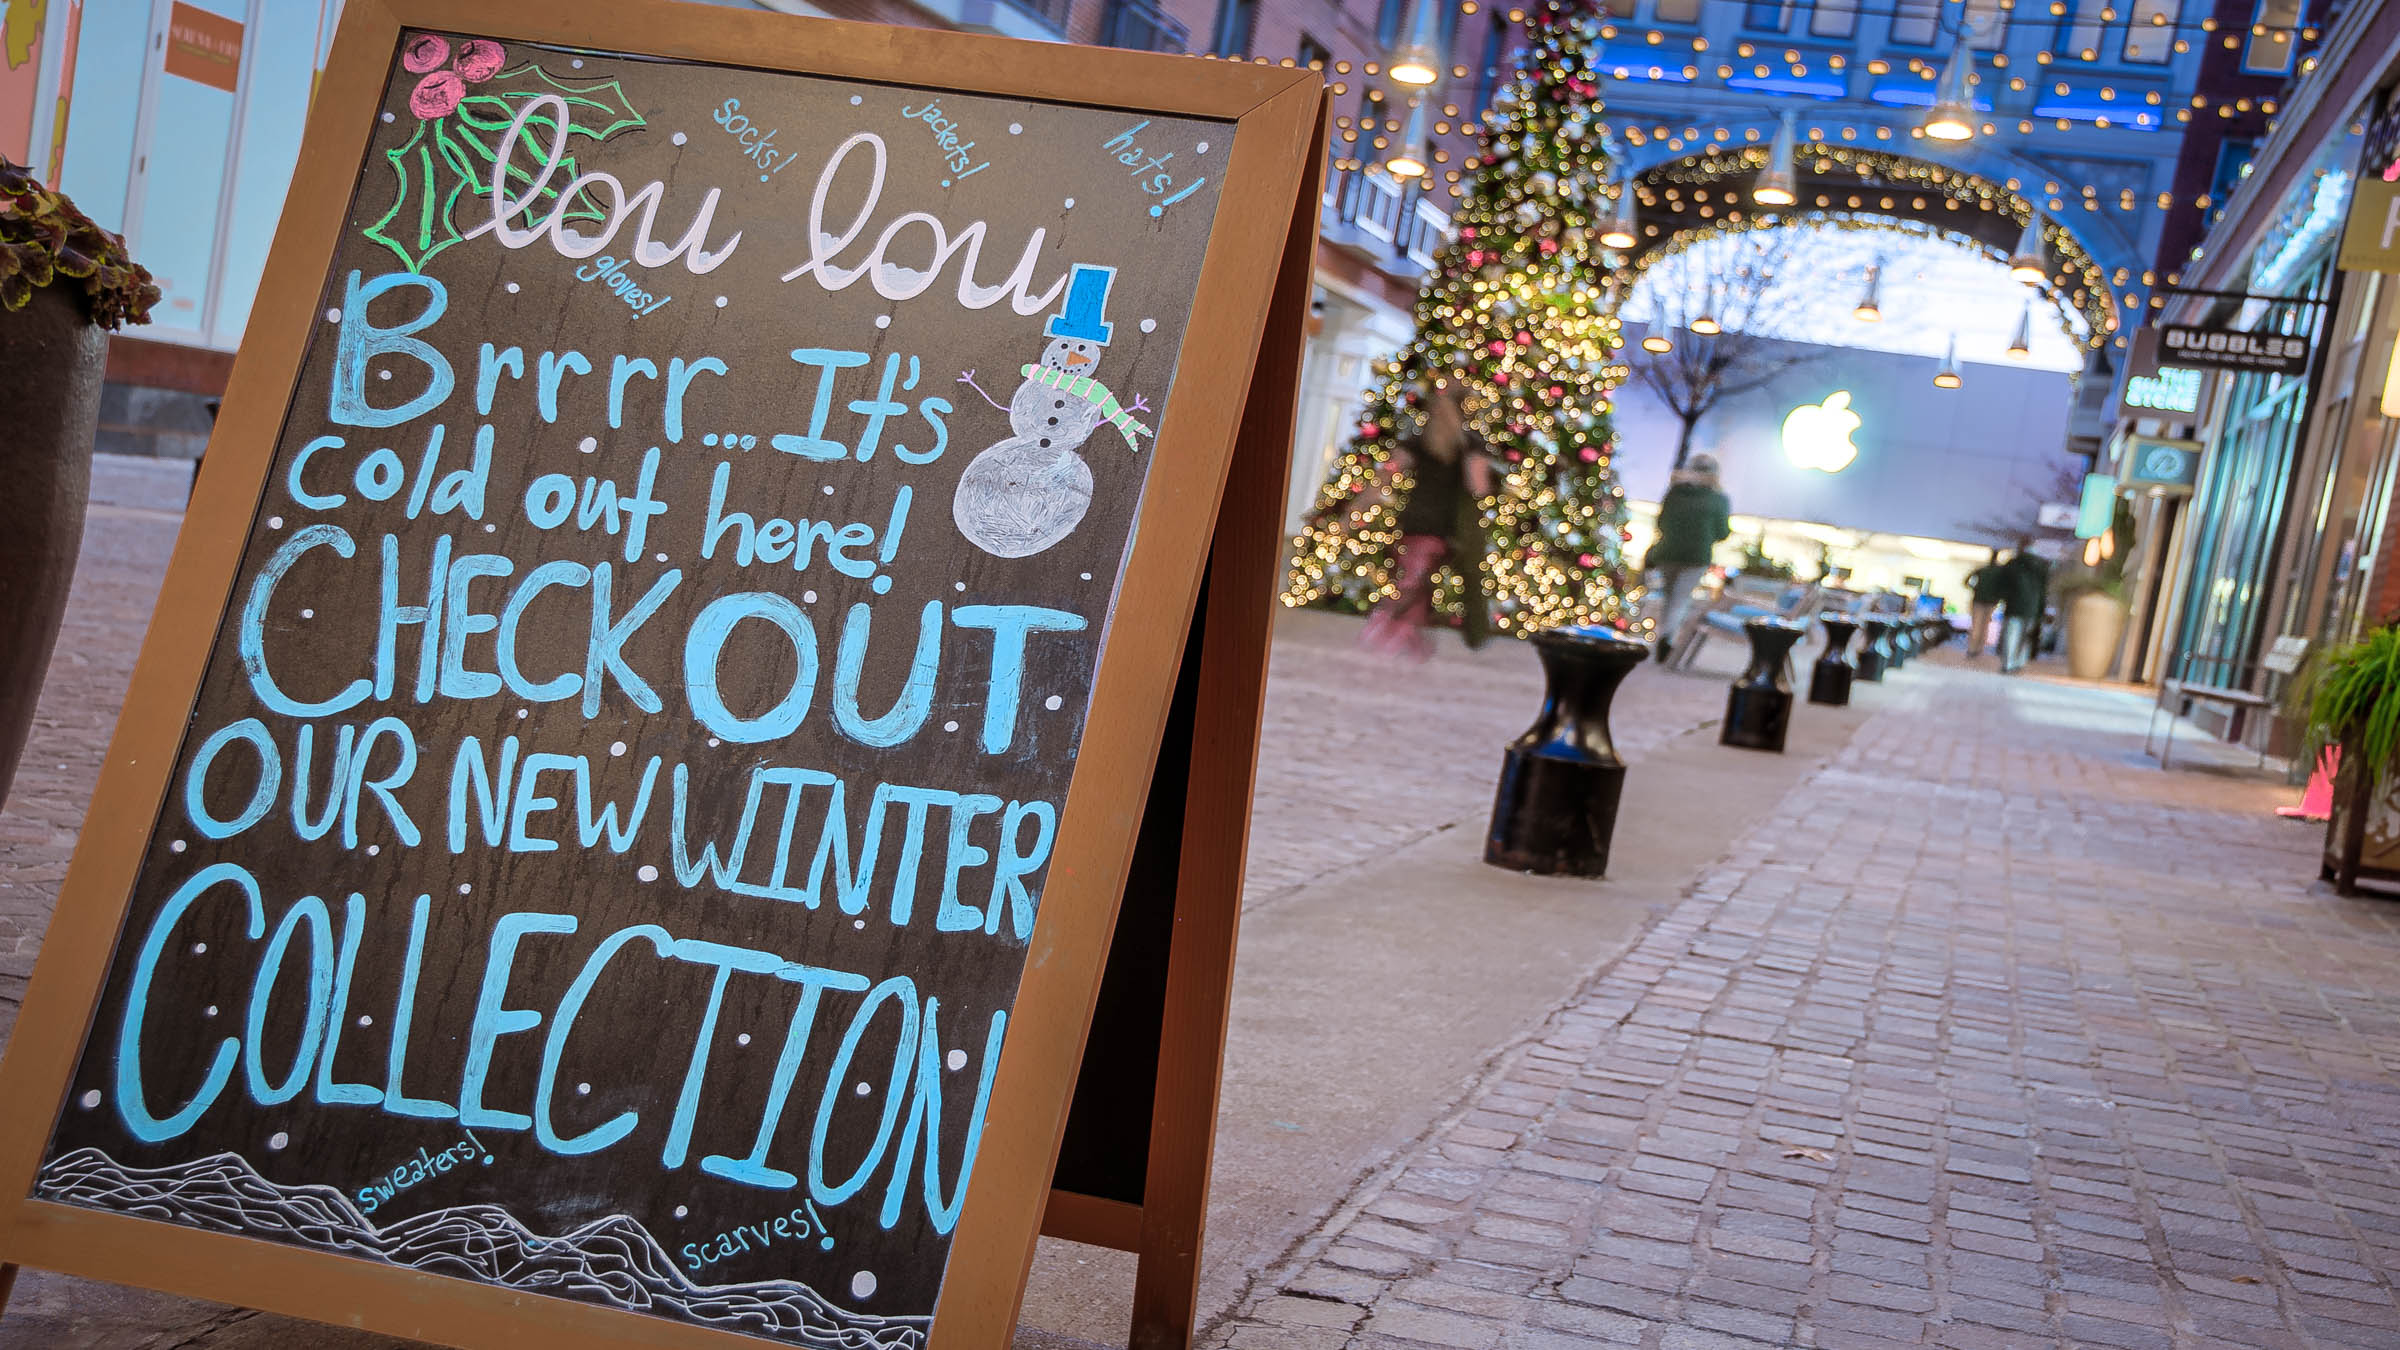 socks!
jackets!
hats!
lou lou
gloves!
Brrrr... It's
cold out here!
CHECK OUT
OUR NEW WINTER
COLLECTION
sweaters!
scarves!
BUBBLES